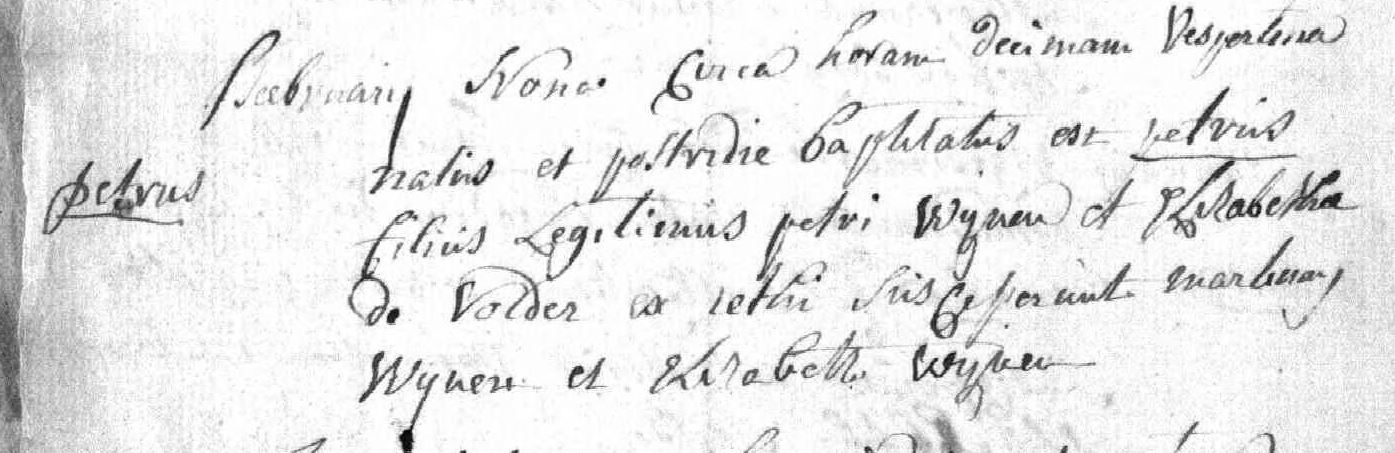 Feebruarij Nona Circa horam decimam Vespertina
petrus
natus et postridie baptitatus est petrus
filius Legitimus petri Wynen et Elizabetha
de Volder ex rethi Susceperunt martinus
Wynen et Elizabetha Wynen